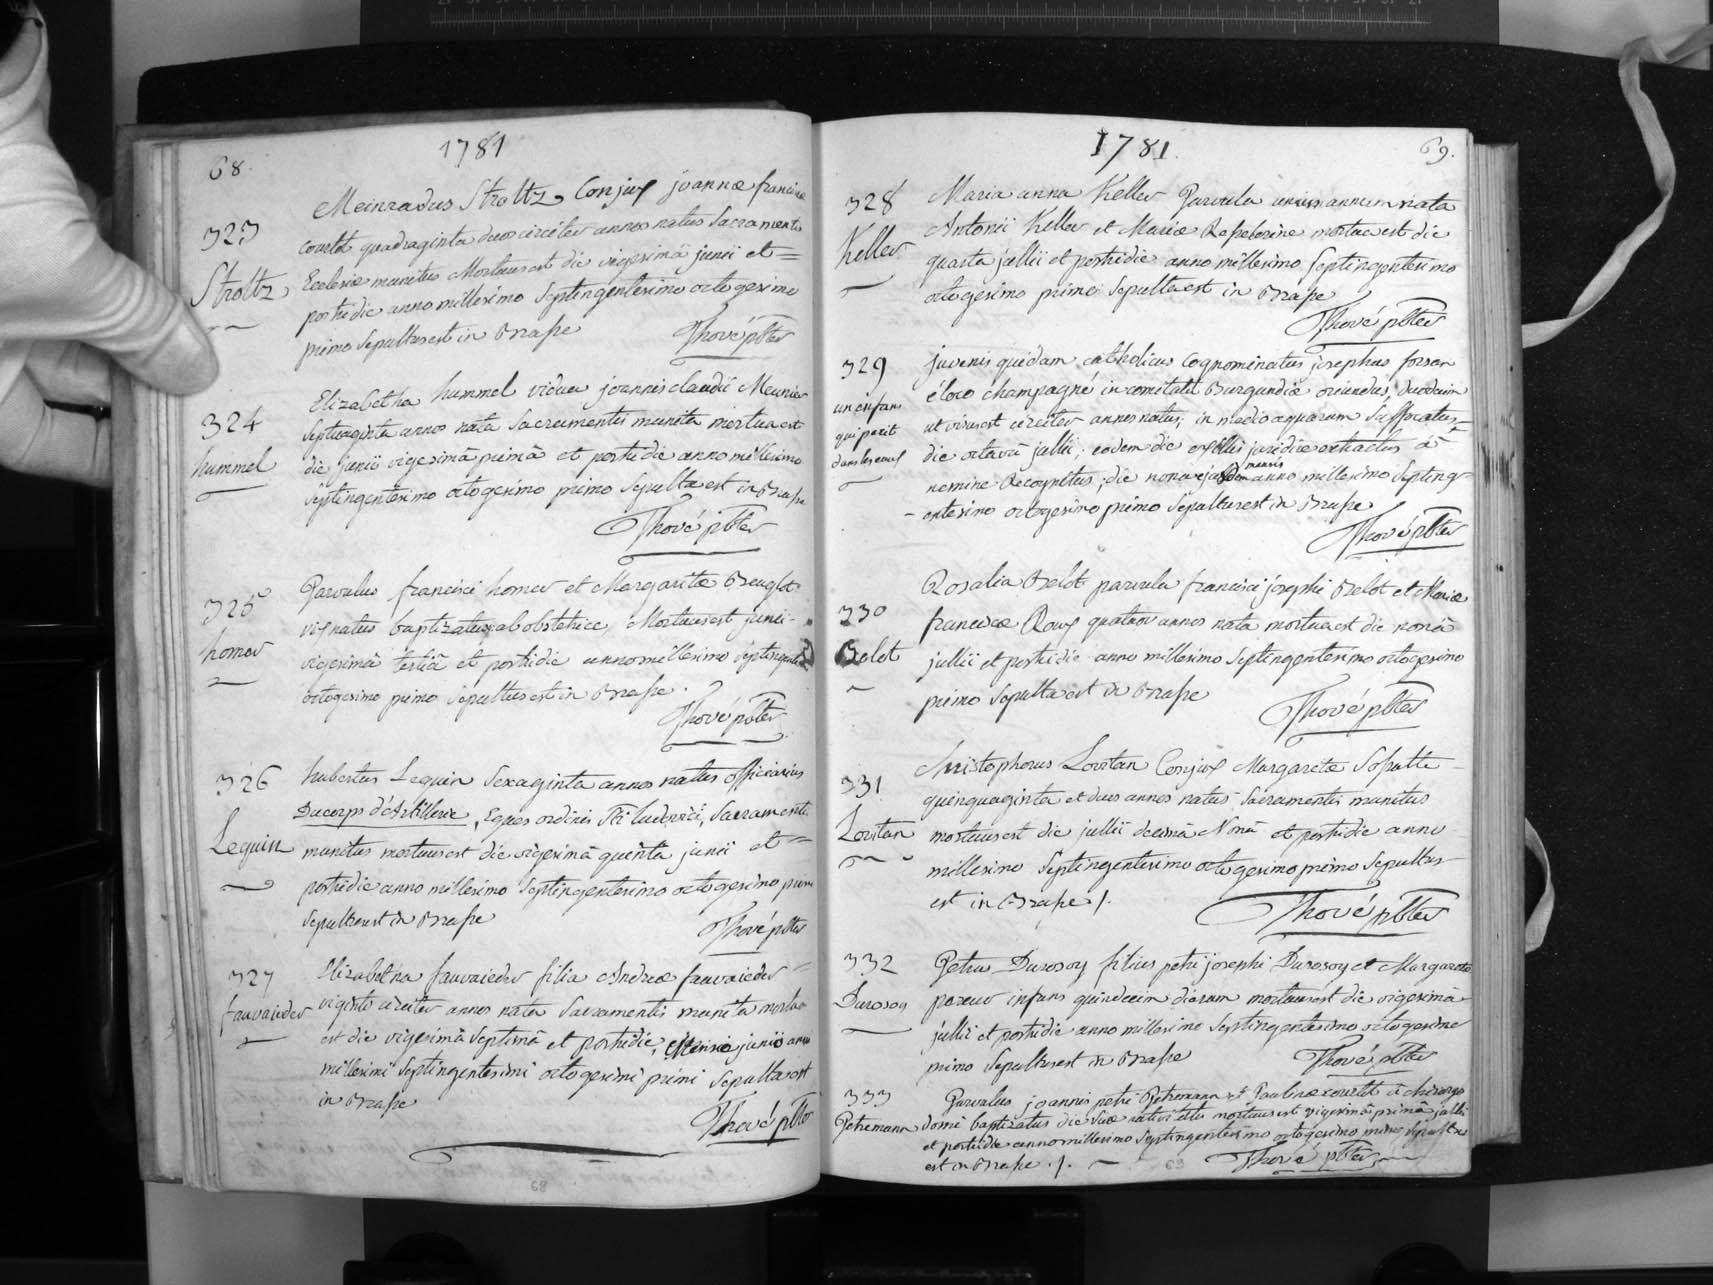 68.
1781
323
Stroltz
Meinradus Stroltz, Conjux joannæ francisæ
courtot quadraginta duos circiter annos natus Sacramentis
Ecclesiæ munitus Mortuus est die vigesimâ junii et =
postridie anno millesimo Septingentesimo octogesimo
primo Sepultus est in Brasse
Thové pbter
324
hummel
Elizabetha hummel vidua joannis claudii Meunier
Septuaginta annos nata Sacramentis munita mortua est
die junii vigesimâ primâ et postridie anno millesimo
Septingentesimo octogesimo primo Sepulta est in Brasse
Thové pbter
325
homer
Parvulus francisci homer et Margaritæ
vix natus baptizatus ab obstetrice, Mortuus est junii
vigesimâ tertiâ et postridie anno millesimo Septingentesimo
octogesimo primo Sepultus est in Brasse.
Thové pbter
326
Lequin
hubertus Lequin Sexaginta annos natus officiarius
Du corps d'Artillerie, Eques ordinis Sti ludovici, Sacramentis
munitus mortuus est die vigesimâ quinta junii et =
postridie anno millesimo Septingentesimo octogesimo primo
Sepultus est in Brasse
Thové pbter
327
fauvaieder
Elizabetha fauvaieder filia Andreæ fauvaieder =
viginti circiter annos nata Sacramentis munita mortua
est die vigesimâ Septimâ et postridie, Mensis junii anni
millesimi Septingentesimi octogesimi primi Sepulta est
in Brasse
Thové pbter
68
1781.
69.
328
Keller
Maria anna Keller Parvula unum annum nata
Antonii Keller et Mariæ mortua est die
quarta jullii et postridie anno millesimo Septingentesimo
octogesimo primo Sepulta est in Brasse
Thové pbter
329
un enfant
qui périt
dans les eaux
juvenis quidam catholicus Cognominatus josephus forsan
è loco champagné in comitatu Burgundiæ oriundus, Duodecim
ut visus est circiter annos natus, in medio aquarum Suffocatus
die octavâ jullii; eodem die ex illis juridice extractus à
nemine Recognitus; die nona ejusdem mensis anno millesimo Septing-
- entesimo octogesimo primo Sepultus est in Brasse
Thové pbter
330
Belot
Rosalia Belot parvula francisci josephi Belot et Mariæ
franciscæ Roux quatuor annos nata mortua est die nonâ
jullii et postridie anno millesimo Septingentesimo octogesimo
primo Sepulta est in Brasse
Thové pbter
331
Lorstan
Christophorus Lorstan Conjux Margaretæ
quinquaginta et duos annos natus Sacramentis munitus
mortuus est die jullii decimâ Nonâ et postridie anno
millesimo Septingentesimo octogesimo primo Sepultus
est in Brasse /.
Thové pbter
332
Durosoy
Petrus Durosoy filius petri josephi Durosoy et Margaretæ
infans quindecim dierum mortuus est die vigesimâ
jullii et postridie anno millesimo Septingentesimo octogesimo
primo Sepultus est in Brasse
Thové pbter
333
Petremann
Parvulus joannis petri Petremann et Paulinæ courtot à chirurgo
domi baptizatus die Suæ nativitatis mortuus est vigesimâ primâ jullii
et postridie anno millesimo Septingentesimo octogesimo primo Sepultus
est in Brasse ./.
Thové pbter
69